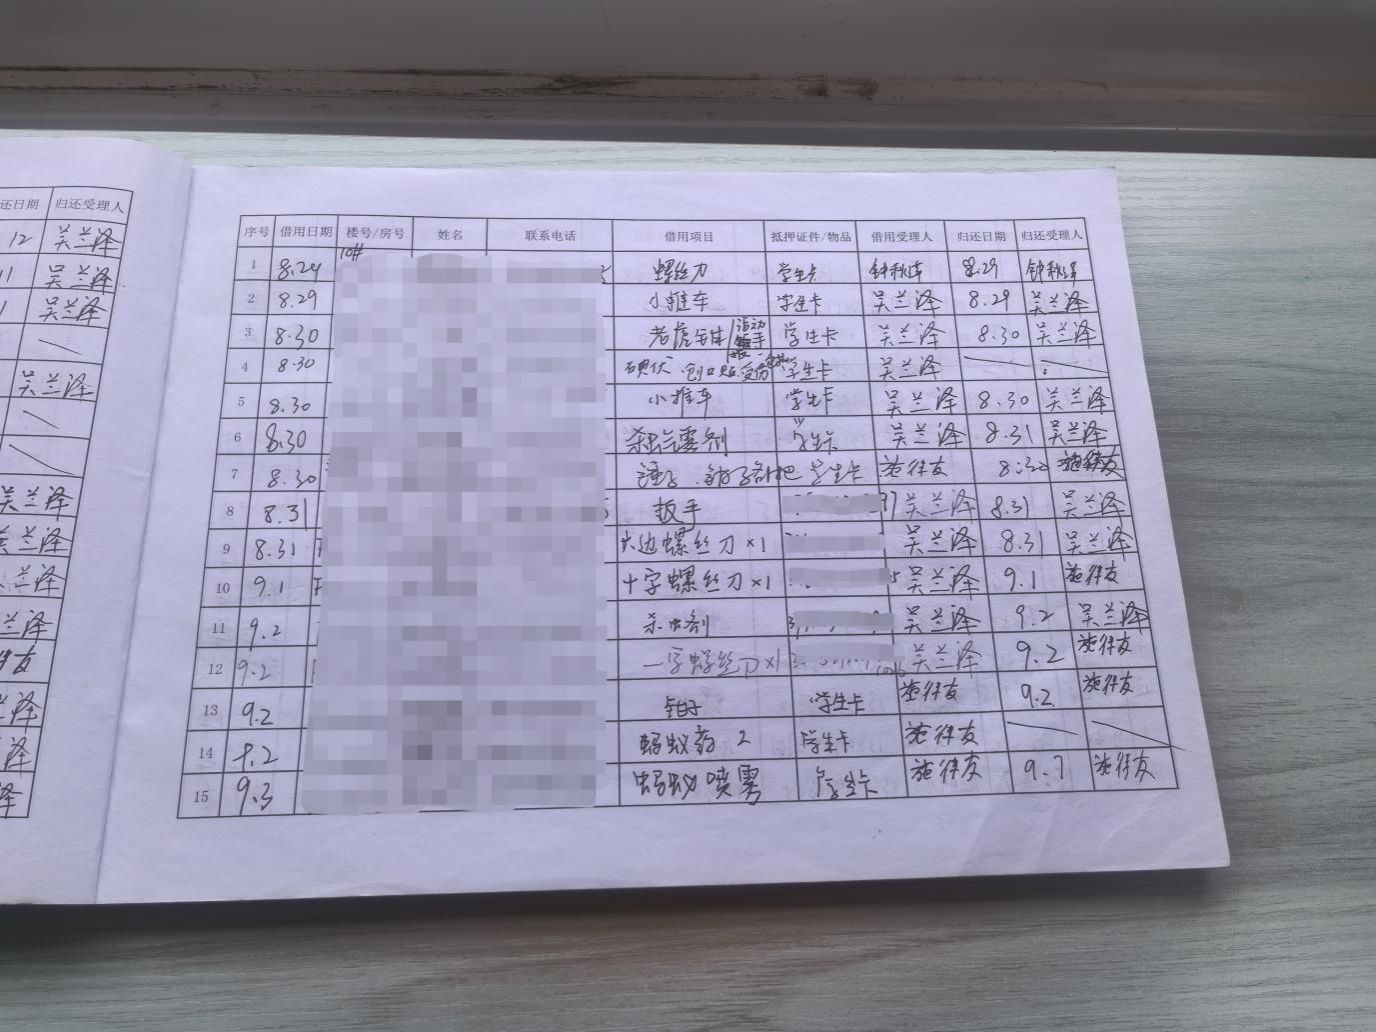 还日期 归还受理人
12 吴兰泽
11 吴兰泽
1 吴兰泽
吴兰泽
吴兰泽
吴兰泽
吴兰泽
兰泽
友
泽
泽
泽
序号 借用日期 楼号/房号 姓名 联系电话 借用项目 抵押证件/物品 借用受理人 归还日期 归还受理人
1 8.24 10# 螺丝刀 学生卡 8.29
2 8.29 小推车 学生卡 吴兰泽 8.29 吴兰泽
3 8.30 老虎钳 活动扳手 学生卡 吴兰泽 8.30 吴兰泽
4 8.30 碘伏 创口贴 学生卡 吴兰泽
5 8.30 小推车 学生卡 吴兰泽 8.30 吴兰泽
6 8.30 杀虫气雾剂 学生卡 吴兰泽 8.31 吴兰泽
7 8.30 学生卡 施待友 8.30 施待友
8 8.31 扳手 97 吴兰泽 8.31 吴兰泽
9 8.31 六边螺丝刀×1 吴兰泽 8.31 吴兰泽
10 9.1 十字螺丝刀×1 吴兰泽 9.1 施待友
11 9.2 杀虫剂 吴兰泽 9.2 吴兰泽
12 9.2 一字螺丝刀×1 吴兰泽 9.2 施待友
13 9.2 钳子 学生卡 施待友 9.2 施待友
14 9.2 蚂蚁药 2 学生卡 施待友
15 9.3 蚂蚁喷雾 学生卡 施待友 9.7 施待友